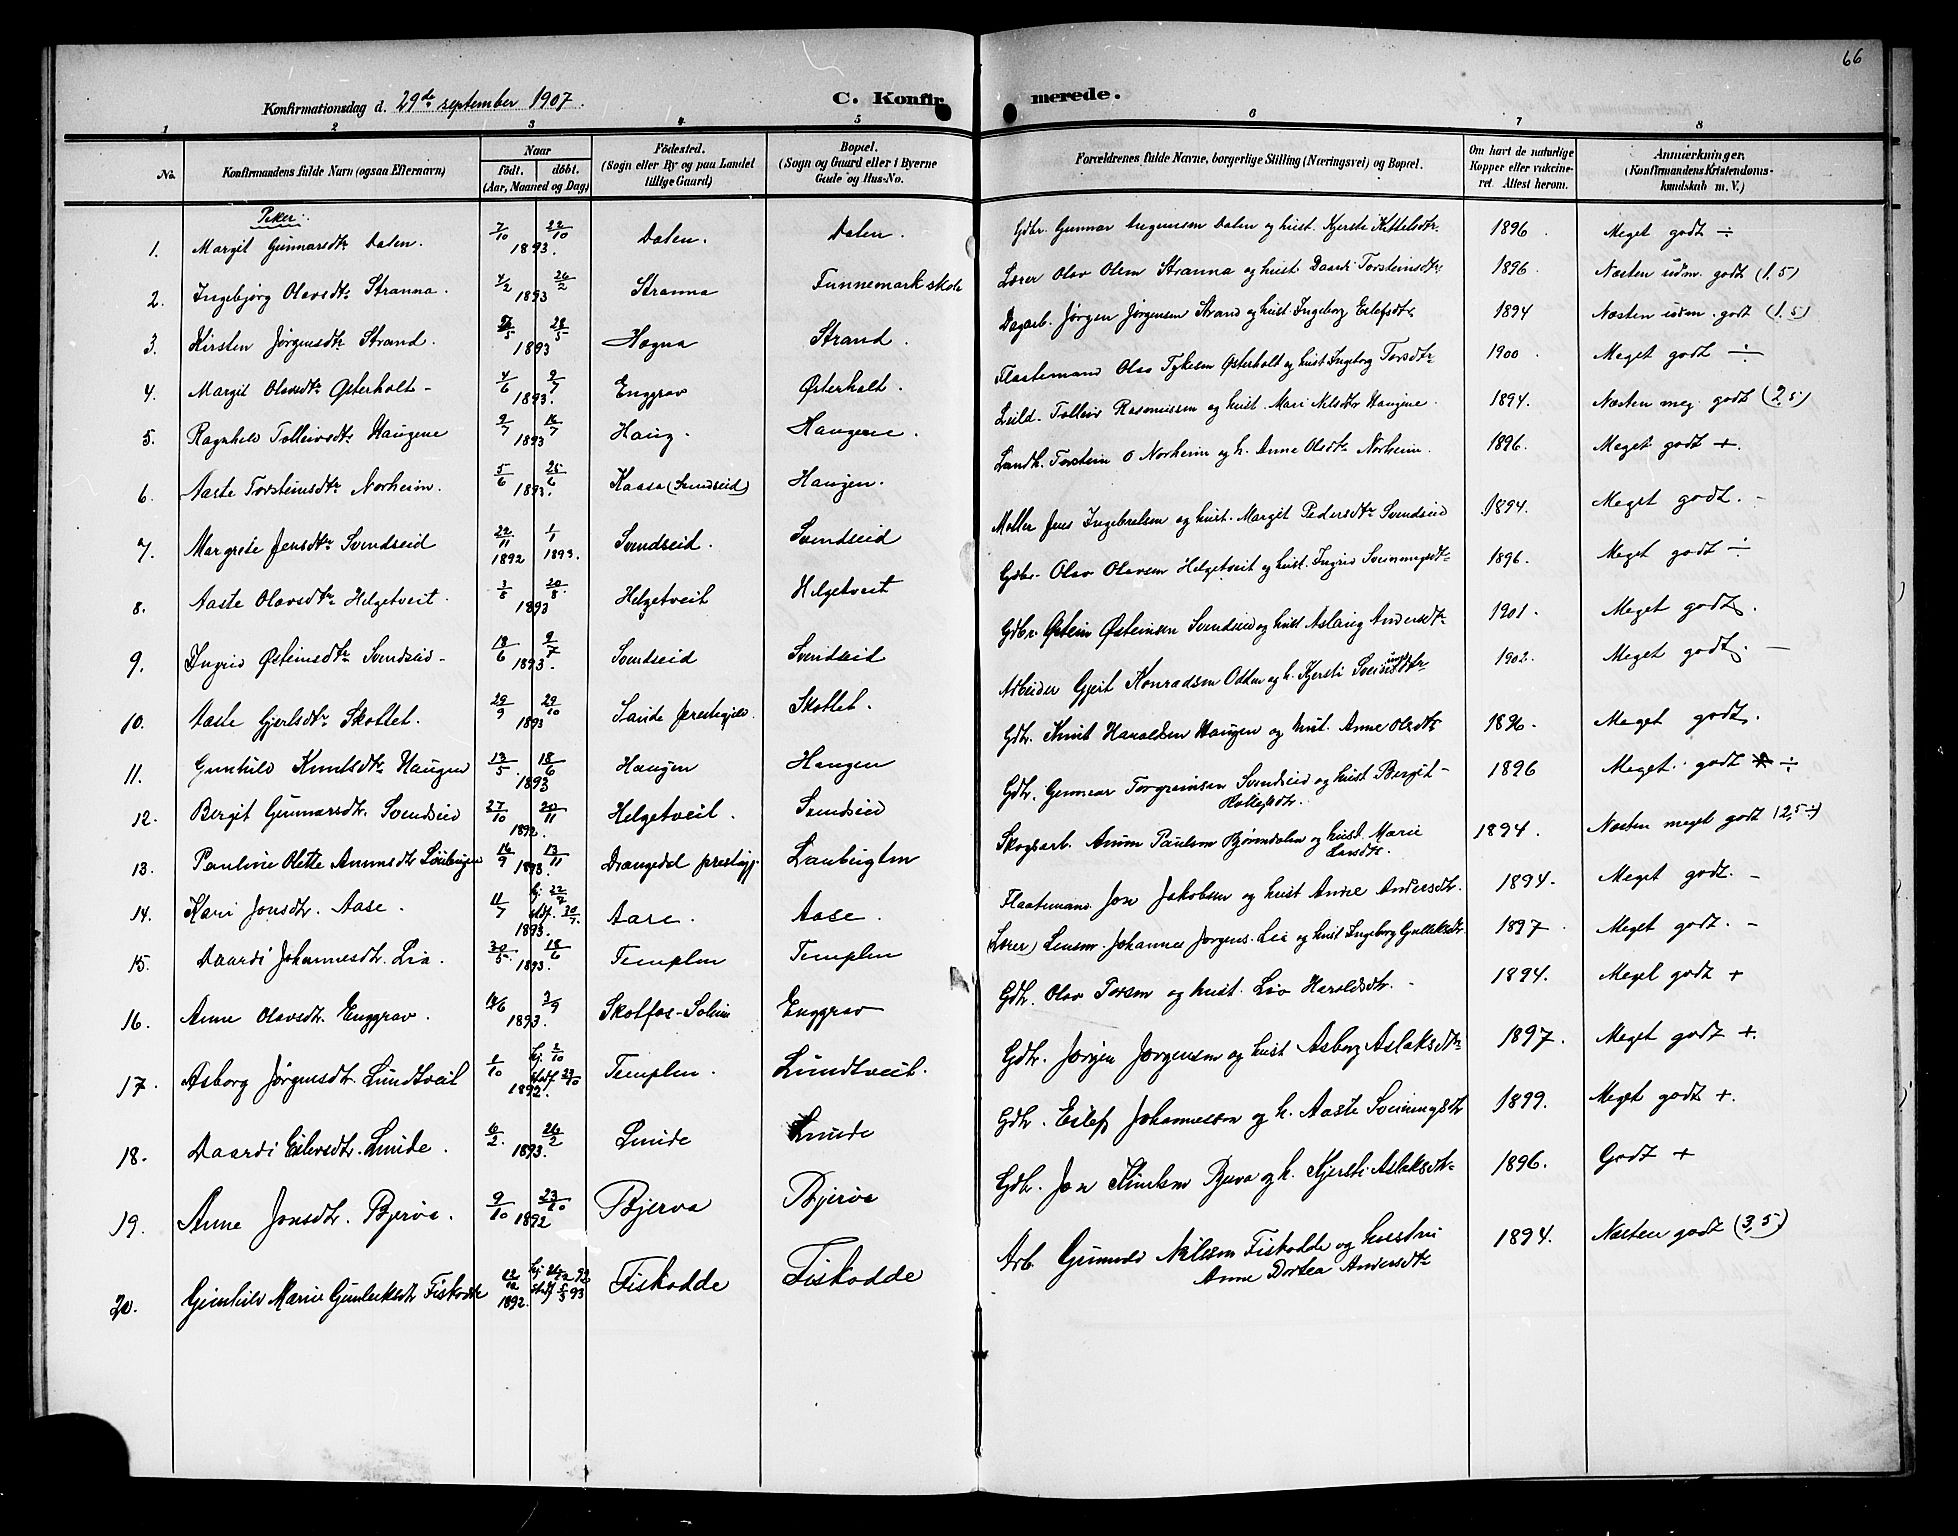 66
Konfirmationsdag d. 29de september 1907.
C. Konfir merede.
1 2 3 4 5 6 7 8
No.
Konfirmandens fulde Navn (ogsaa Efternavn)
Naar
født. døbt.
(Aar, Maaned og Dag)
Fødested.
(Sogn eller By og paa Landet
tillige Gaard)
Bopæl.
(Sogn og Gaard eller i Byerne
Gade og Hus-No.
Forældrenes fulde Navne, borgerlige Stilling (Næringsvei) og Bopæl.
Om havt de naturlige
Kopper eller vakcine-
ret. Attest herom.
Anmærkninger.
(Konfirmandens Kristendoms-
kundskab m. V.)
Piker:
1. Margit Gunnarsdtr Dalen. 7/10 22/10 1893. Dalen. Dalen. Gdbr. Gunnar Dalen og hust. Kjersti Kittelsdtr. 1896. Meget godt ÷
2. Ingebjørg Olavsdtr Stranna. 4/2 26/2 1893 Stranna Tunnemark skole Lærer Olav Olsen Stranna og hust. Daardi Torsteinsdtr 1896. Næsten udm. godt (1,5)
3. Kirsten Jørgensdtr Strand. 28/5 1893 Hogna Strand. Dagarb. Jørgen Jørgensen Strand og hust. Ingeborg Eilefsdtr 1894 Næsten udm. godt (1,5)
4. Margit Olavsdtr Østerholt - 4/6 2/7 1893. Enggrav Østerholt. Flaatemand Olav Tykesen Østerholt og hust Ingeborg Torsdtr 1900. Meget godt ÷
5. Ragnhild Tolleivsdtr Haugene 2/7 16/7 1893. Haug. Haugene. Leild. Tolleiv Rasmussen og hust. Mari Nilsdtr Haugene. 1894. Næsten meg. godt (2,5)
6. Aaste Torsteinsdtr Norheim. 5/6 25/6 1893. Kaasa (Svendseid) Haugen. Landh. Torstein O Norheim og h. Anne Olsdtr Norheim. 1896. Meget godt +.
7. Margrete Jensdtr Svendseid 22/11 1892 1/1 1893. Svendseid. Svendseid Møller Jens Ingebretsen og hust. Margit Pedersdtr Svendseid 1894. Meget godt. -
8. Aaste Olavsdtr Helgetveit. 3/8 20/8. 1893 Helgetveit Helgetveit Gdbr. Olav Olavsen Helgetveit og hust. Ingrid Sveinungsdtr 1896. Meget godt ÷
9. Ingrid Østeinsdtr Svendseid - 18/6 9/7 1893. Svendseid Svendseid Gdbr. Østein Østeinsen Svendseid og hust Aslaug Andersdtr 1901. Meget godt.
10. Aaste Gjertsdtr Skottet. 29/9 29/10 1893 Saude prestegjeld. Skottet. Arbeider Gjert Konradsen Odden og h. Kjersti Sveinungsdtr 1902. Meget godt. -
11. Gunhild Knutsdtr Haugen 13/5. 18/6 1893 Haugen Haugen Gdbr. Knut Haraldsen Haugen og hust. Anne Olsdtr 1896. Meget godt.
12. Bergit Gunnarsdtr. Svendseid 27/10 20/11 1892. Helgetveit. Svendseid Gdbr. Gunnar Torgrimsen Svendseid og hust Bergit - 1896 Meget godt ÷
13. Pauline Olette Anunsdtr 16/9 13/11 1893. Drangedal prestegj. Laubugten Skogsarb. Anun Paulsen Bjørndalen og hust. Marie Larsdtr. 1894. Næsten meget godt (2,5÷)
14. Kari Jonsdtr. Aase. 11/7 1893. Aase. Aase. Flaatemand Jon Jakobsen og hust Anne Andersdtr. 1894. Meget godt. -
15. Daardi Johannesdtr. Lia. 30/5. 18/6 1893. Templen Templen (Lærer) Lensm. Johannes Jørgens. Lia og hust Ingeborg Gulleksdtr. 1897. Meget godt. -
16. Anne Olavsdtr. Enggrav. 3/9 1893. Skotfos-Solum Enggrav Gdbr. Olav Torsen og hust. Liv Haraldsdtr. 1894. Meget godt +
17. Asborg Jørgensdtr. Lundtveit 1892. Templen. Lundtveit. Gdbr. Jørgen Jørgensen og hust Asborg Aslaksdtr 1897. Meget godt +.
18. Daardi Eilevsdtr. Lunde. 6/2. 26/2 1893. Lunde Lunde Gdbr. Eilef Johannesson og h. Aaste Sveinungsdtr 1899. Meget godt +.
19. Anne Jonsdtr. Bjerva. 9/10 23/10 1892 Bjerva Bjerva Gdbr. Jon Knutsen Bjerva og h. Kjersti Aslaksdtr 1896. Godt +
20. Gunhild Marie Gunleiksdtr Fiskodde 1892. Fiskodde Fiskodde Arb. Nilsen Fiskodde og hustru Anne Dortea Andersdtr 1894. Næsten godt (3,5)